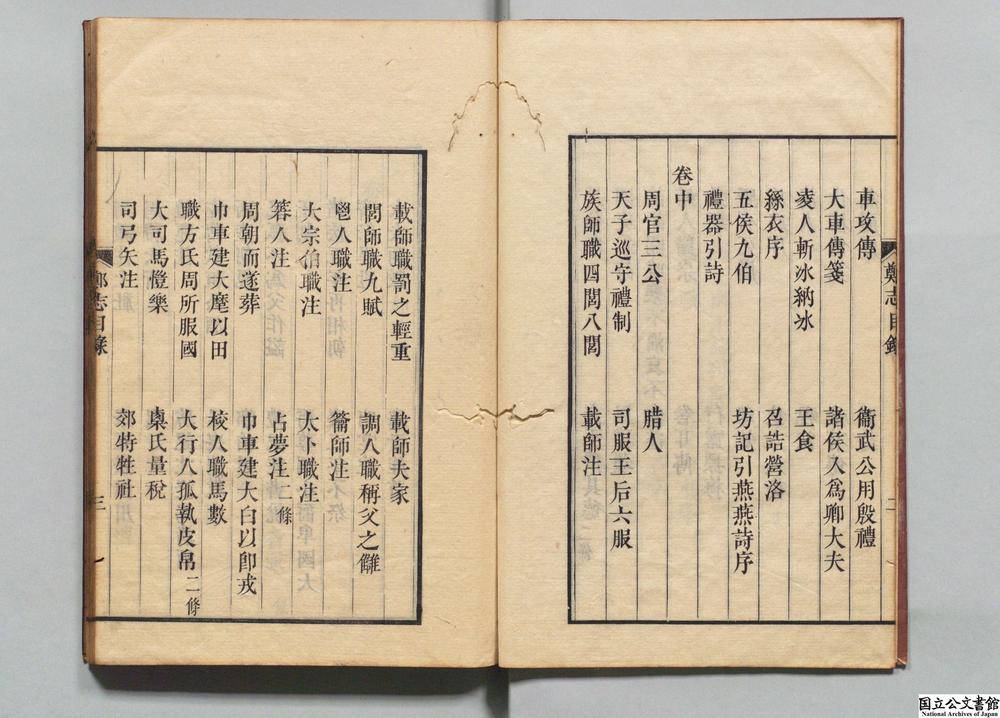 車攻傳　衞武公用殷禮
大車傳箋　諸侯入爲卿大夫
凌人斬冰納冰　王食
絲衣序　召誥營洛
五侯九伯　坊記引燕燕詩序
禮器引詩
卷中
周官三公　腊人
天子巡守禮制　司服王后六服
族師職四閭八閭　載師注
鄭志目錄　二
載師職罰之輕重　載師夫家
閭師職九賦　調人職稱父之讎
鬯人職注　籥師注
大宗伯職注　太卜職注
簭人注　占夢注二條
周朝而遂葬　巾車建大白以卽戎
巾車建大麾以田　校人職馬數
職方氏周所服國　大行人孤執皮帛二條
大司馬愷樂　㮚氏量稅
司弓矢注　郊特牲社
鄭志目錄　三
国立公文書館
National Archives of Japan